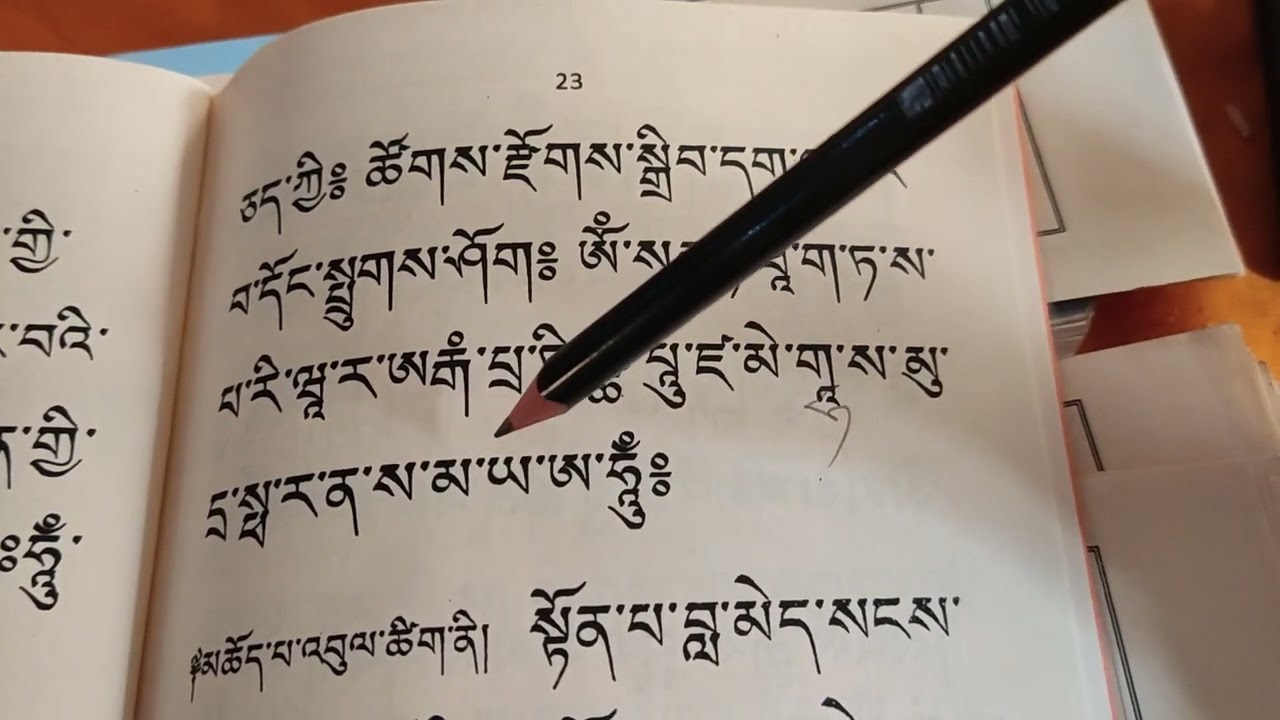 23
ཅད་ཀྱི༔ ཚོགས་རྫོགས་སྒྲིབ་དག་
ན་དོང་སྤྲུགས་ཤོག༔ ཨོཾ་ས་ ཐཱ་ག་ཏ་ས་
པ་རི་ཝཱ་ར་ཨརྒཾ་ པུ་ཛ་མེ་གྷ་ས་མུ་
དྲ་སྥ་ར་ན་ས་མ་ཡ་ཨ་ཧཱུྃ༔
མཆོད་པ་འབུལ་ཚིག་ནི། སྟོན་པ་བླ་མེད་སངས་
ཀྱི་
བའི་
ཀྱི་
ཧཱུྃ་